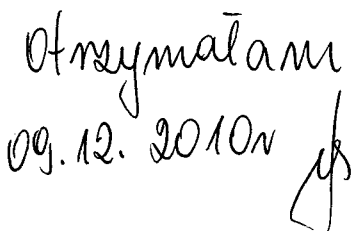 Otrzymałam
09.12.2010r